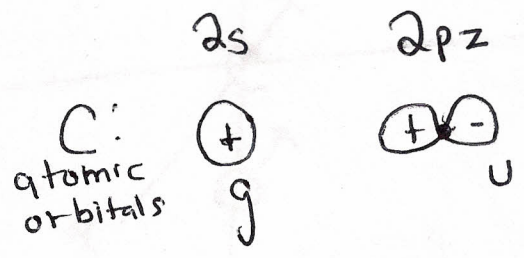 2s 2pz
C: + + -
atomic
orbitals g u